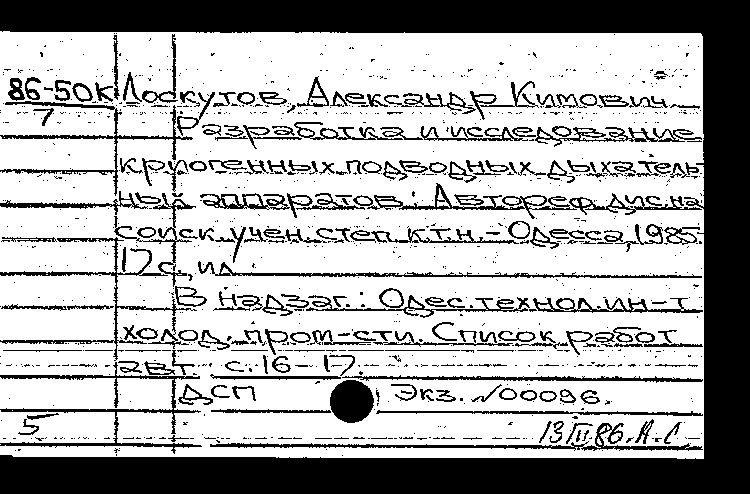 86-50К Лоскутов, Александр Кимович
7 Разработка и исследование
криогенных подводных дыхатель-
ных аппаратов: Автореф. дис. на
соиск. учен. степ. к.т.н. - Одесса, 1985
17 с., ил.
В надзаг.: Одес. технол. ин-т
холод. пром-сти. Список работ
авт. с. 16-17.
ДСП Экз. №00096.
5 13 III 86. А.С